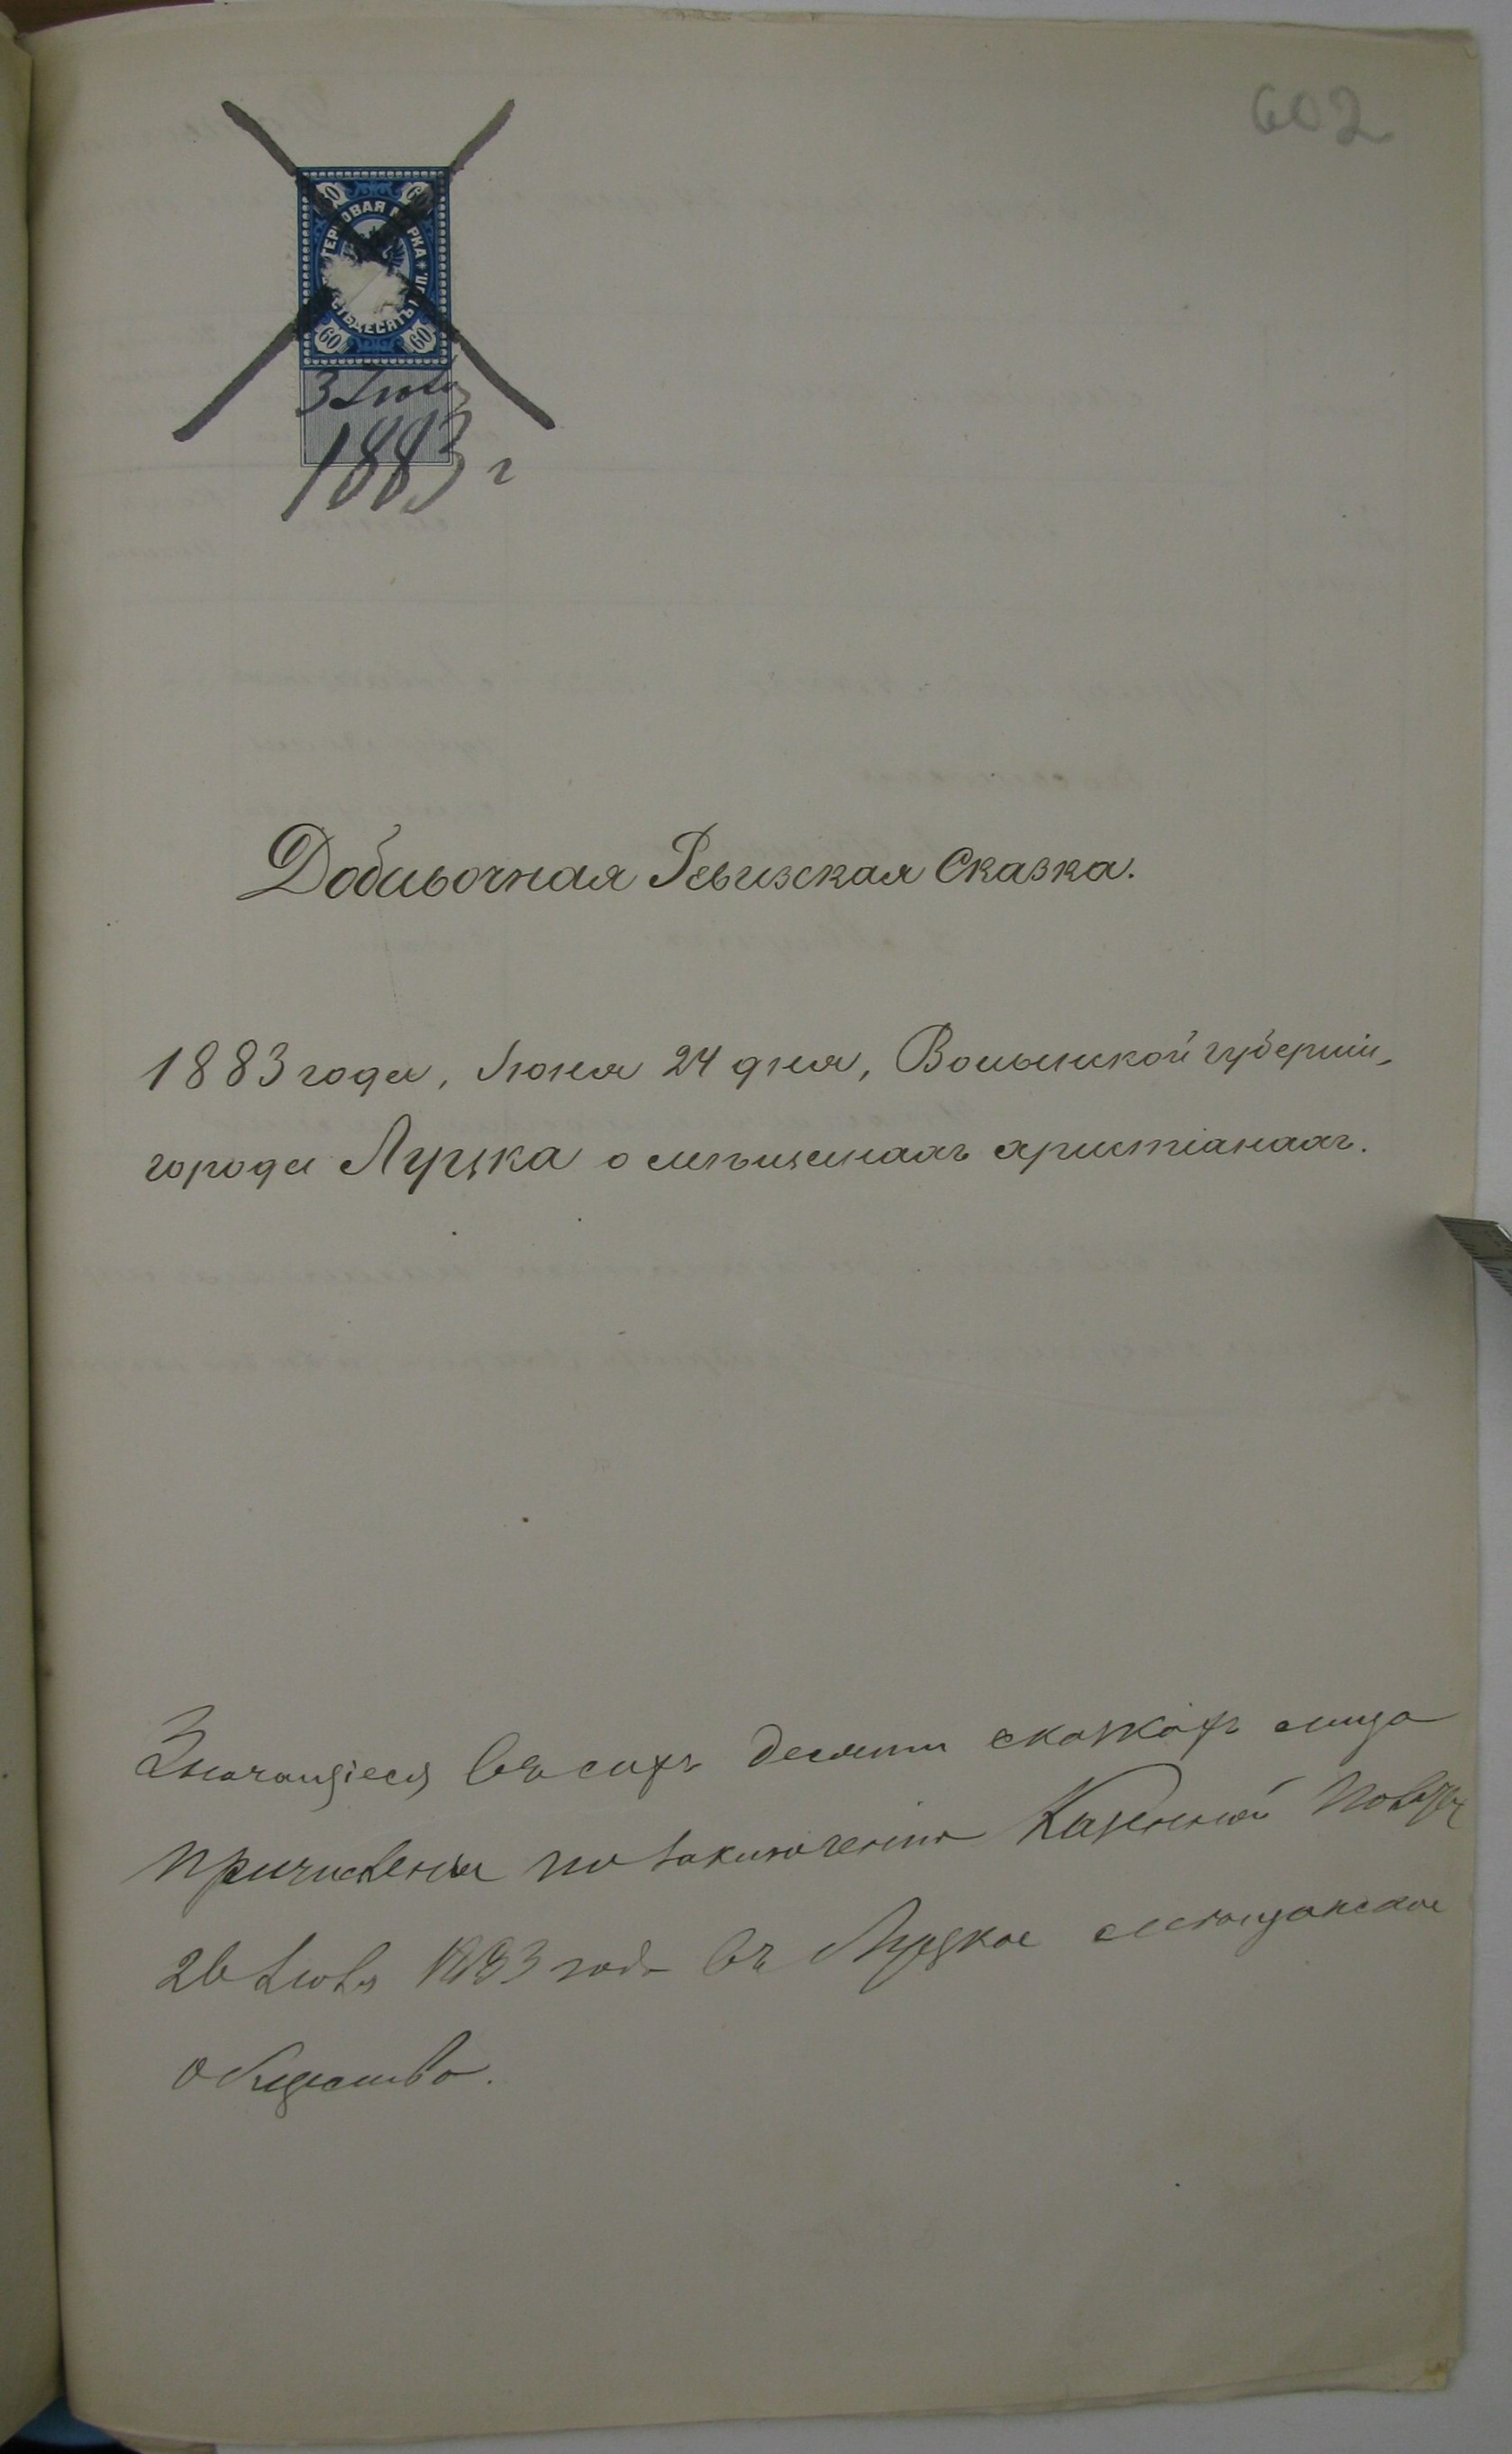 602
60 60
ГЕРБОВАЯ МАРКА
ШЕСТЬДЕСЯТЪ КОП.
60 60
3 Іюля
1883 г
Добавочная Ревизская Сказка.
1883 года, Іюня 24 дня, Волынской губерніи,
города Луцка о мѣщанахъ христіанахъ.
Значащіеся въ сихъ десяти сказкахъ лица
причислены по заключенію Казенной Палаты
26 Іюля 1883 года въ Луцкое мѣщанское
общество.